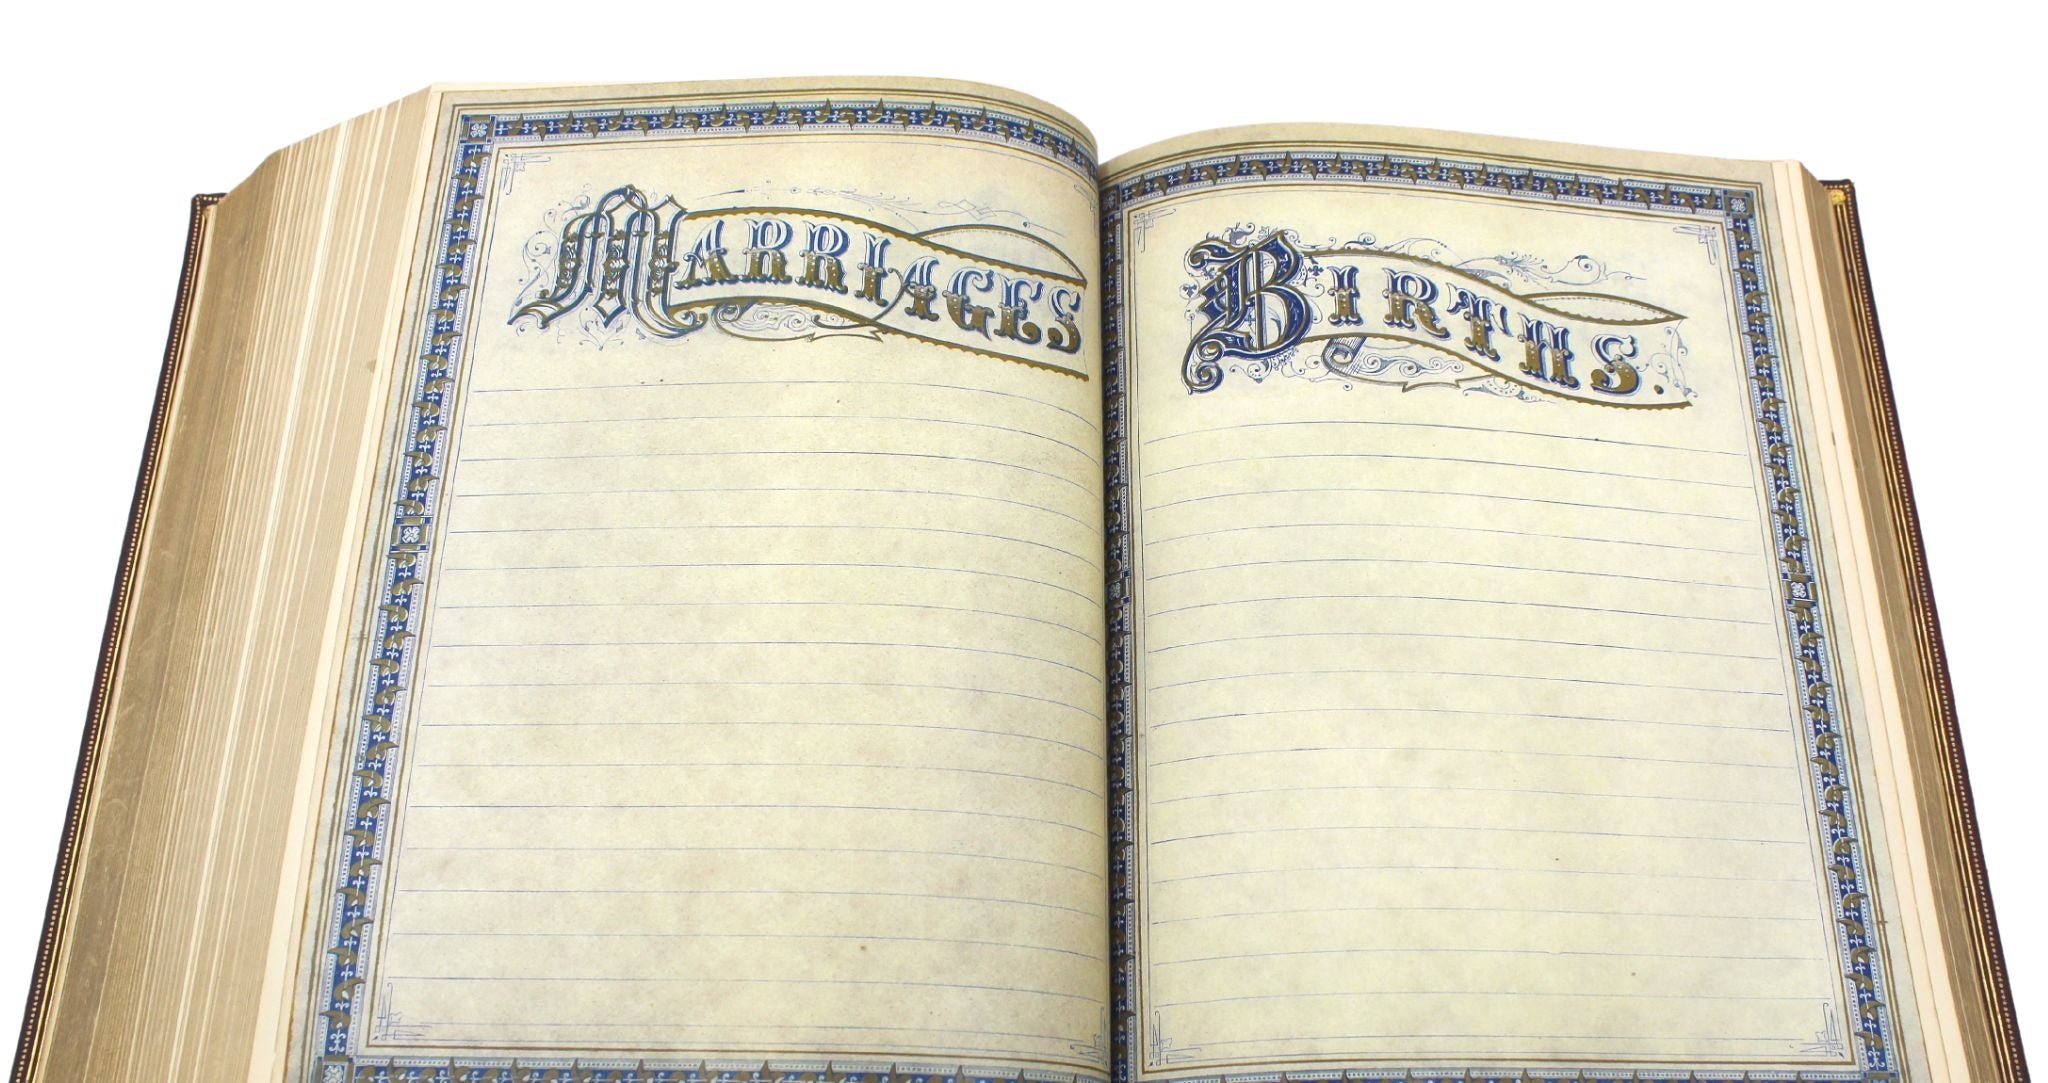 MARRIAGES
BIRTHS.